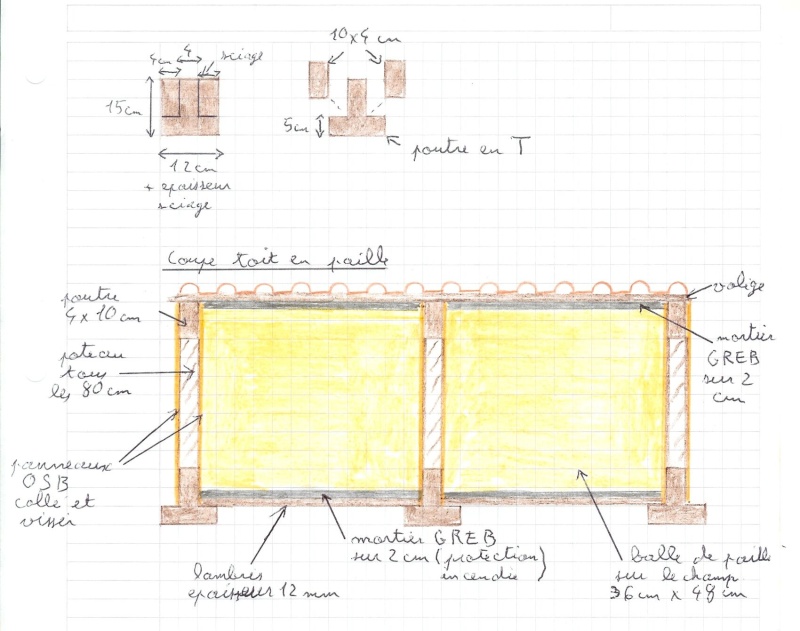 10x4 cm
4
4cm
sciage
15cm
12cm
+ epaisseur
sciage
5cm
poutre en T
Coupe toit en paille
poutre
4 x 10 cm
volige
poteau
tous
les 80 cm
mortier
GREB
sur 2
cm
panneaux
OSB
collé et
visser
mortier GREB
sur 2 cm (protection
incendie)
lambris
epaisseur 12 mm
balle de paille
sur le champ
36 cm x 48 cm